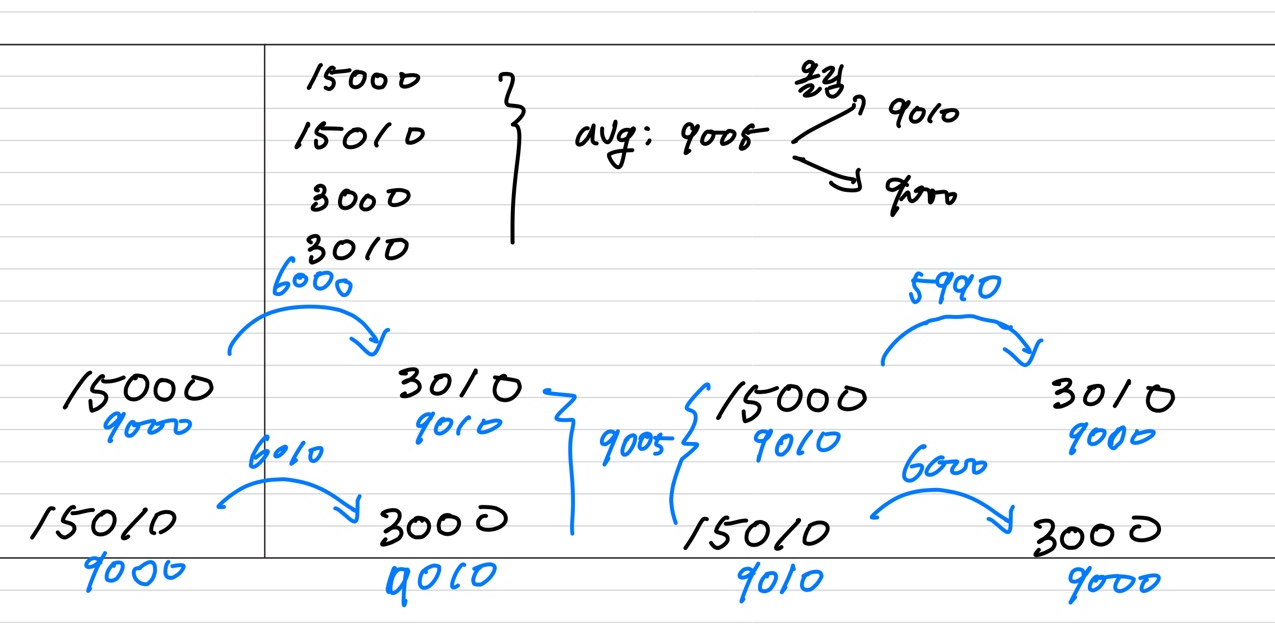 15000
15010
3000
3010
avg: 9005
올림
9010
9000
6000
15000 3010
9000 9010
6010
15010 3000
9000 9010
9005
5990
15000 3010
9010 9000
6000
15010 3000
9010 9000